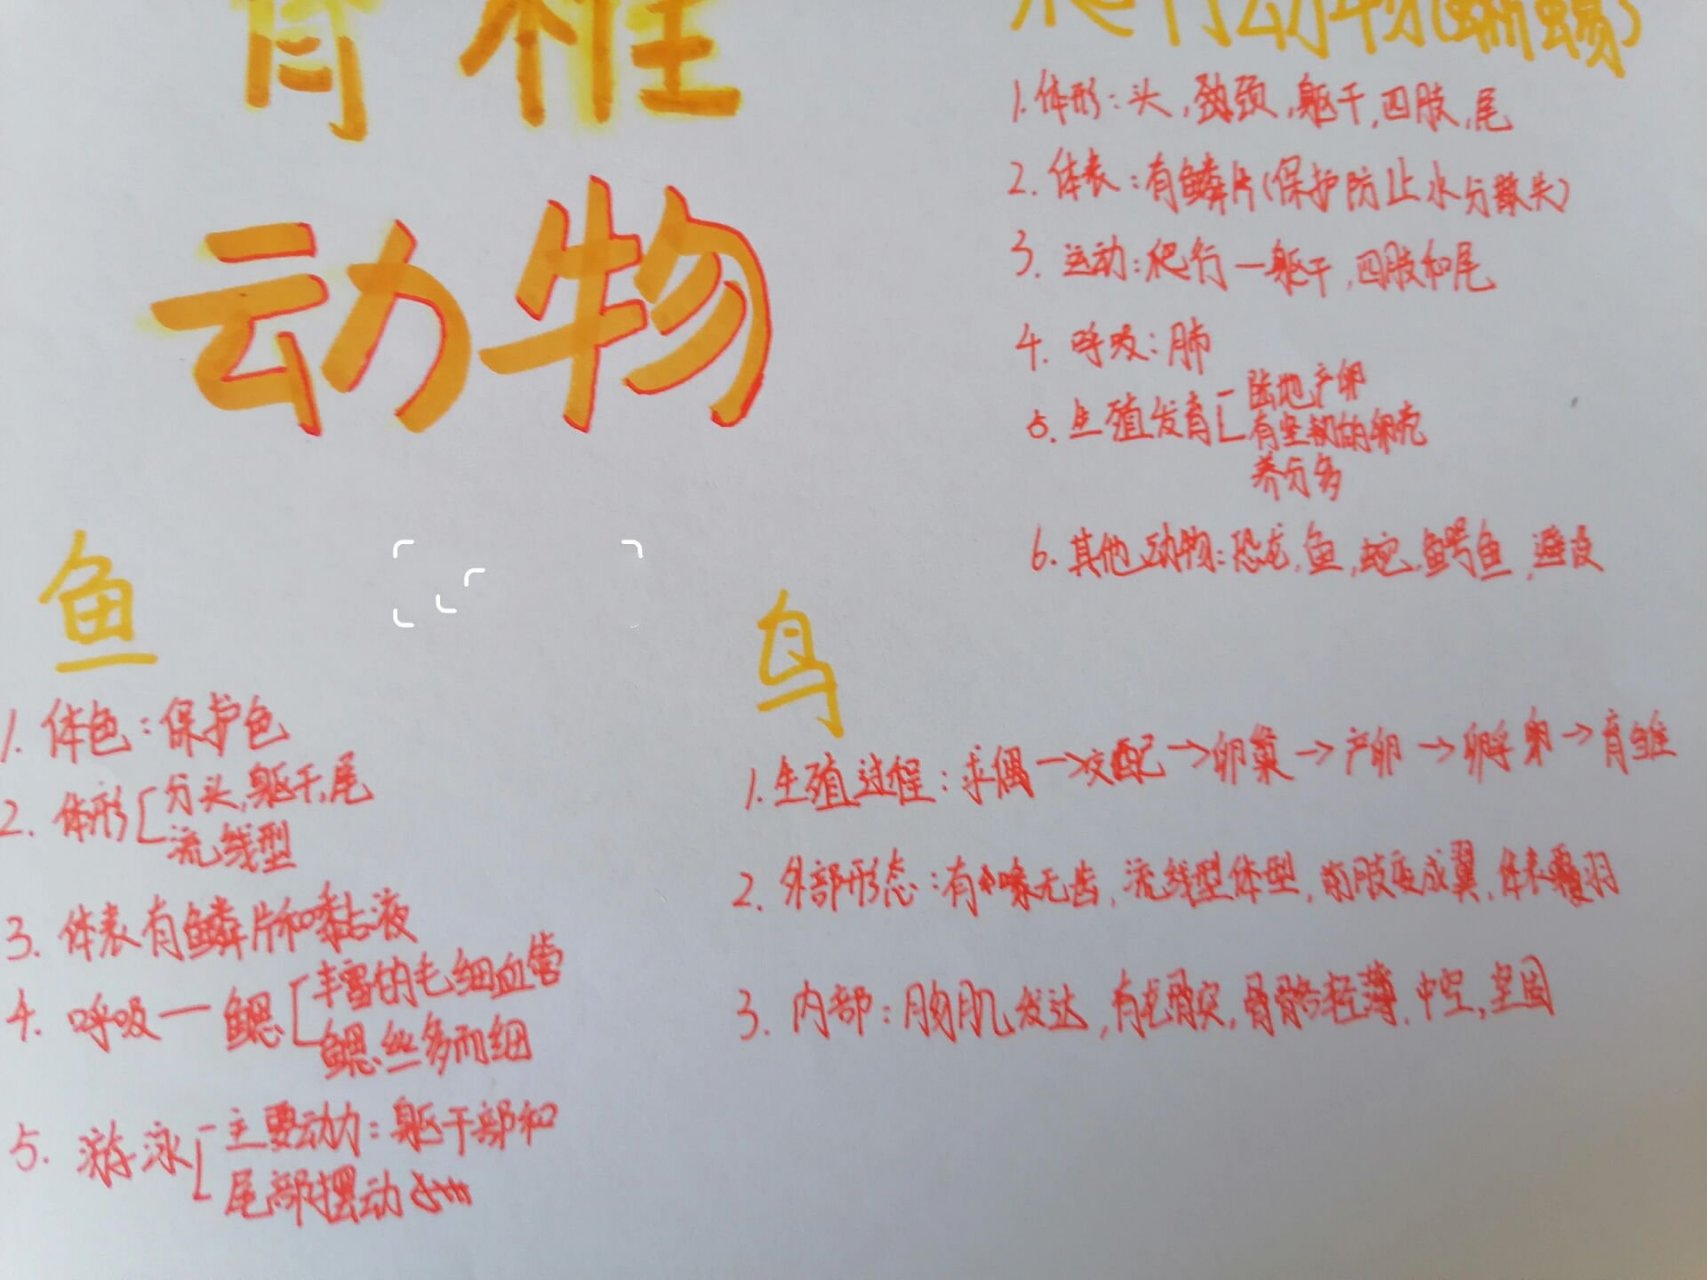 脊椎
动物
爬行动物(蜥蜴)
1.体形：头,颈颈,躯干,四肢,尾
2.体表：有鳞片(保护防止水分散失)
3.运动：爬行一躯干,四肢和尾
4.呼吸：肺
5.生殖发育
陆地产卵
有坚韧的卵壳
养分多
6.其他动物：恐龙,鱼,蛇,鳄鱼,避役
鱼
1.体色：保护色
2.体形
分头,躯干,尾
流线型
3.体表有鳞片和黏液
4.呼吸一鳃
丰富的毛细血管
鳃丝多而细
5.游泳
主要动力：躯干部和
尾部摆动
鸟
1.生殖过程：求偶→交配→卵巢→产卵→孵卵→育雏
2.外部形态：有喙无齿,流线型体型,前肢变成翼,体表覆羽
3.内部：胸肌发达,有龙骨突,骨骼轻薄,中空,坚固